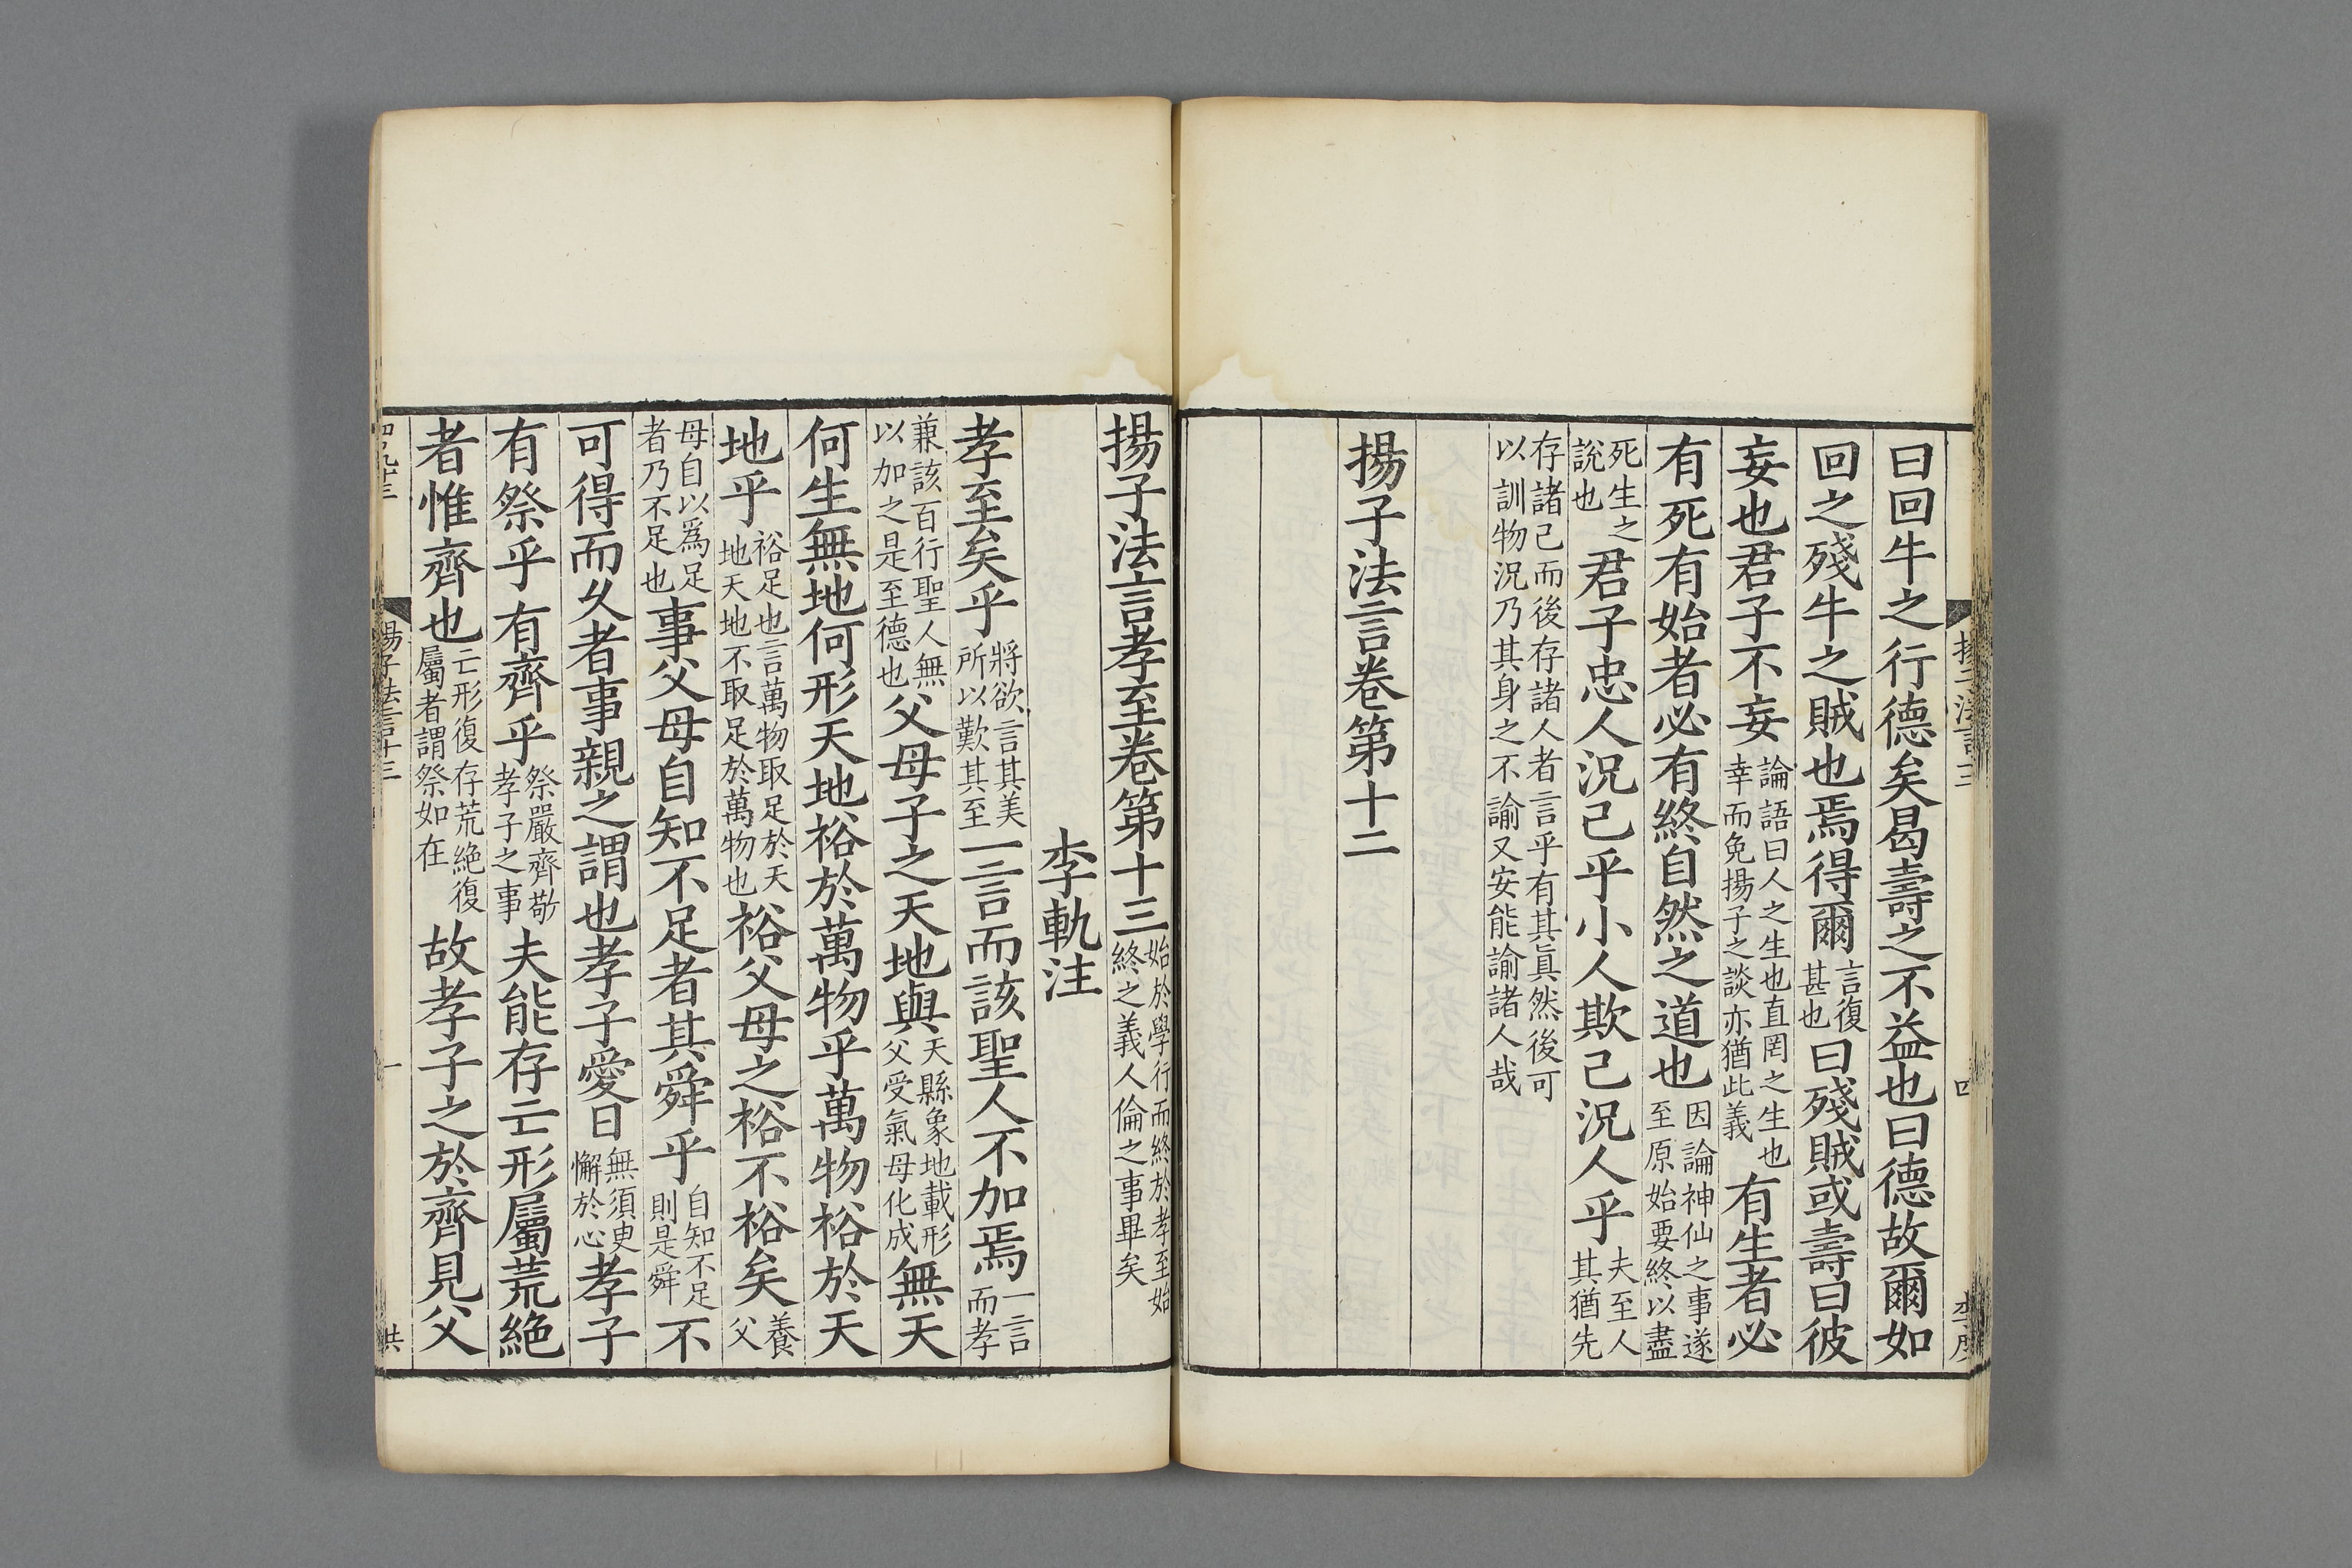 曰回牛之行德矣曷壽之不益也曰德故爾如
回之殘牛之賊也焉得爾言復甚也曰殘賊或壽曰彼
妄也君子不妄論語曰人之生也直罔之生也幸而免揚子之談亦猶此義有生者必
有死有始者必有終自然之道也因論神仙之事遂至原始要終以盡
死生之說也君子忠人況己乎小人欺己況人乎夫至人其猶先
存諸己而後存諸人者言乎有其眞然後可以訓物況乃其身之不諭又安能諭諸人哉
揚子法言卷第十二
揚子法言孝至卷第十三始於學行而終於孝至始終之義人倫之事畢矣
李軌注
孝至矣乎將欲言其美所以歎其至一言而該聖人不加焉一言而孝
兼該百行聖人無以加之是至德也父母子之天地與天縣象地載形父受氣母化成無天
何生無地何形天地裕於萬物乎萬物裕於天
地乎裕足也言萬物取足於天地天地不取足於萬物也裕父母之裕不裕矣養父
母自以爲足者乃不足也事父母自知不足者其舜乎自知不足則是舜不
可得而久者事親之謂也孝子愛日無須臾懈於心孝子
有祭乎有齊乎祭嚴齊敬孝子之事夫能存亡形屬荒絕
者惟齊也亡形復存荒絕復屬者謂祭如在故孝子之於齊見父
揚子法言十三
一
共